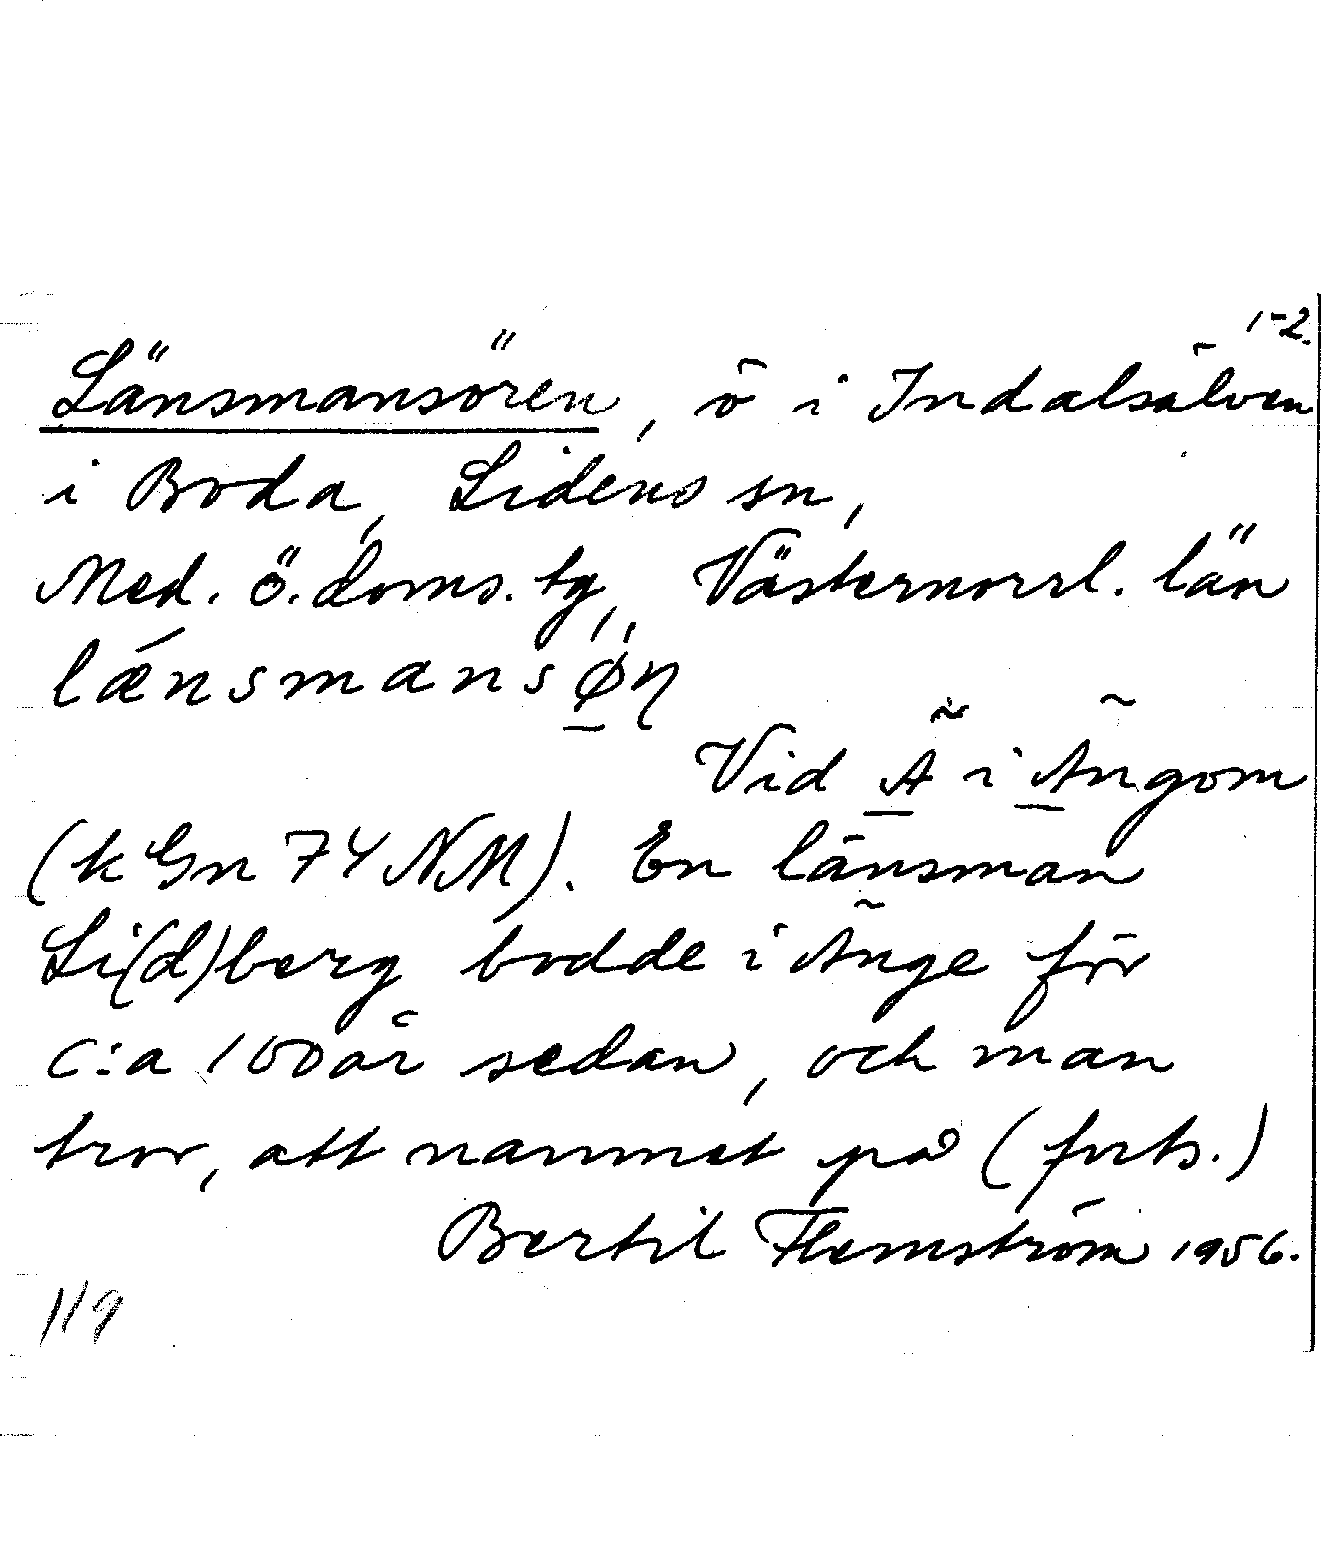 1-2.
Länsmansören, ö i Indalsälven
i Boda, Lidens sn,
Med. ö. doms. tg, Västernorrl. län
lǽnsmansø̱̈ṇ
Vid Ä i Ängom
(k Gn 74 NM). En länsman
Li(d)berg bodde i Änge för
c:a 100 år sedan, och man
tror, att namnet på (forts.)
Bertil Flemström 1956.
119